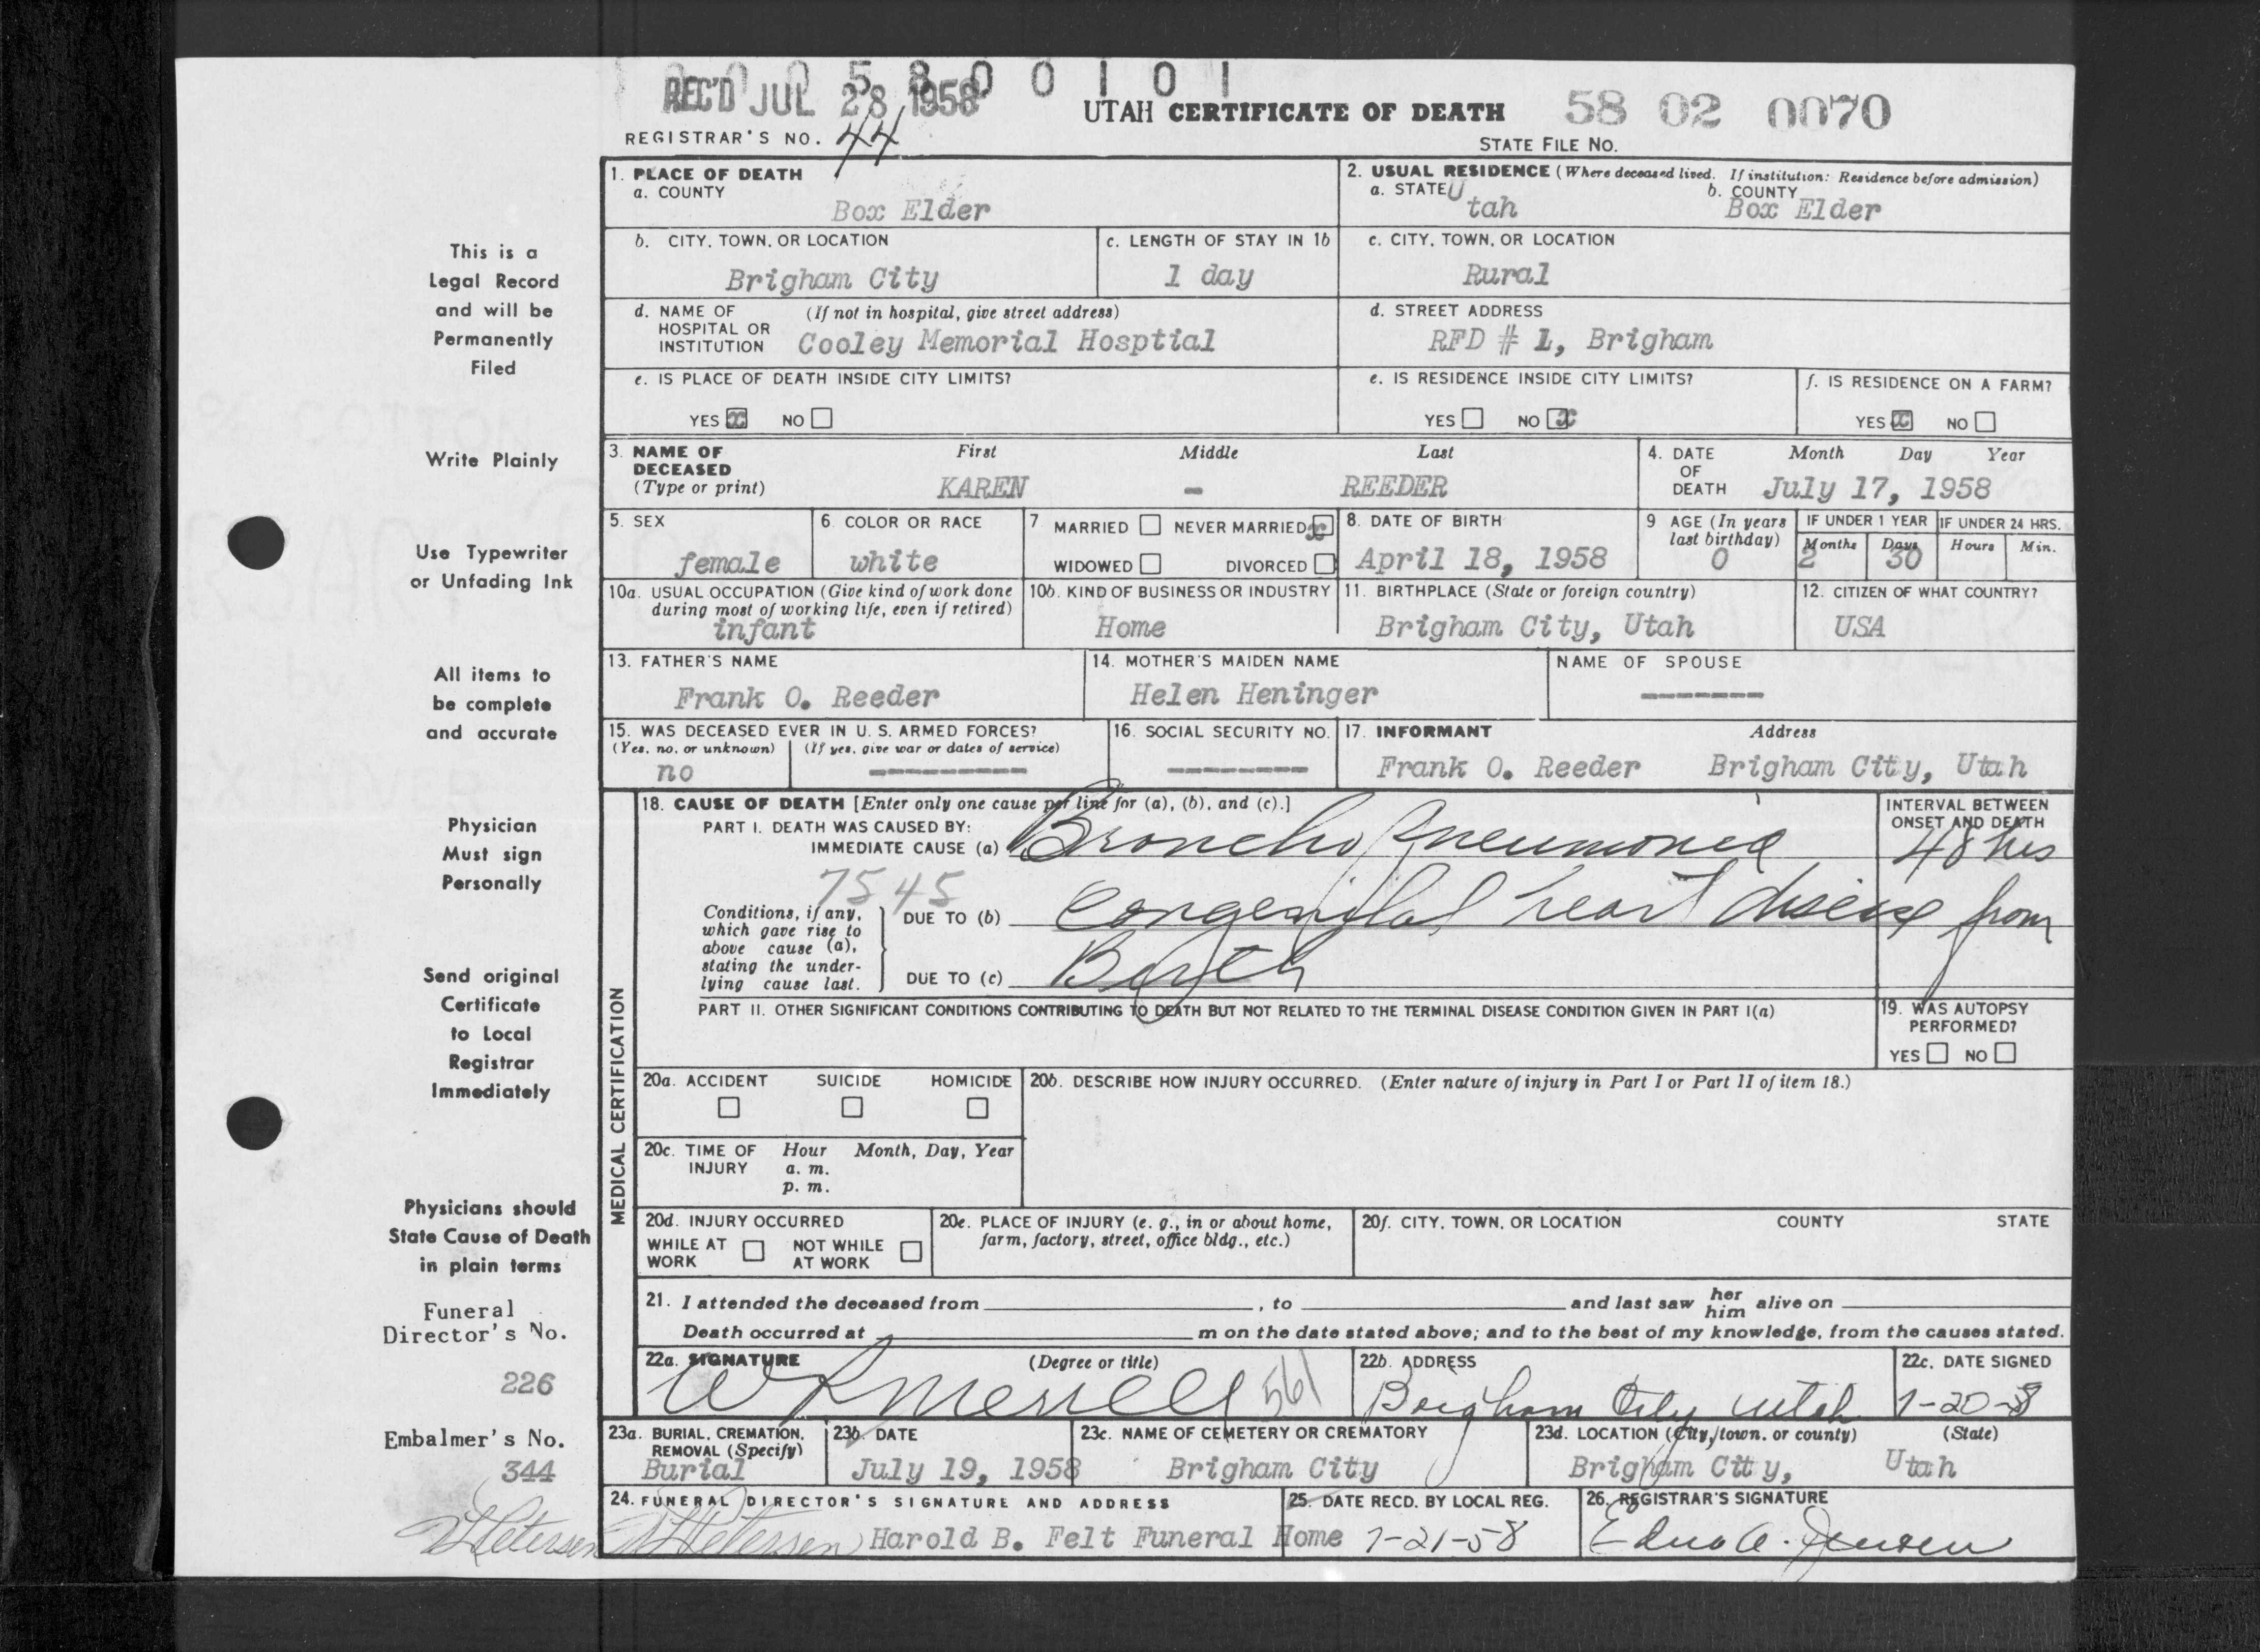 0 0 0 5 8 0 0 1 0 1
REC'D JUL 28 1958
UTAH CERTIFICATE OF DEATH 58 02 0070
REGISTRAR'S NO. 44
STATE FILE NO.
1. PLACE OF DEATH
a. COUNTY
Box Elder
2. USUAL RESIDENCE (Where deceased lived. If institution: Residence before admission)
a. STATE Utah
b. COUNTY
Box Elder
b. CITY, TOWN, OR LOCATION
Brigham City
c. LENGTH OF STAY IN 1b
1 day
c. CITY, TOWN, OR LOCATION
Rural
d. NAME OF (If not in hospital, give street address)
HOSPITAL OR
INSTITUTION Cooley Memorial Hosptial
d. STREET ADDRESS
RFD # 1, Brigham
e. IS PLACE OF DEATH INSIDE CITY LIMITS?
YES x NO
e. IS RESIDENCE INSIDE CITY LIMITS?
YES NO x
f. IS RESIDENCE ON A FARM?
YES x NO
3. NAME OF DECEASED
(Type or print)
First Middle Last
KAREN - REEDER
4. DATE OF DEATH
Month Day Year
July 17, 1958
5. SEX
female
6. COLOR OR RACE
white
7 MARRIED NEVER MARRIED x
WIDOWED DIVORCED
8. DATE OF BIRTH
April 18, 1958
9 AGE (In years last birthday)
0
IF UNDER 1 YEAR
Months Days
2 30
IF UNDER 24 HRS.
Hours Min.
10a. USUAL OCCUPATION (Give kind of work done
during most of working life, even if retired)
infant
10b. KIND OF BUSINESS OR INDUSTRY
Home
11. BIRTHPLACE (State or foreign country)
Brigham City, Utah
12. CITIZEN OF WHAT COUNTRY?
USA
13. FATHER'S NAME
Frank O. Reeder
14. MOTHER'S MAIDEN NAME
Helen Heninger
NAME OF SPOUSE
-------
15. WAS DECEASED EVER IN U. S. ARMED FORCES?
(Yes, no, or unknown) (If yes, give war or dates of service)
no ---------
16. SOCIAL SECURITY NO.
--------
17. INFORMANT Address
Frank O. Reeder Brigham City, Utah
MEDICAL CERTIFICATION
18. CAUSE OF DEATH [Enter only one cause per line for (a), (b), and (c).]
PART I. DEATH WAS CAUSED BY:
IMMEDIATE CAUSE (a) Broncho Pneumonia
INTERVAL BETWEEN
ONSET AND DEATH
48 hrs
7545
Conditions, if any,
which gave rise to
above cause (a),
stating the under-
lying cause last.
DUE TO (b) Congenital heart disease from
DUE TO (c) Birth
PART II. OTHER SIGNIFICANT CONDITIONS CONTRIBUTING TO DEATH BUT NOT RELATED TO THE TERMINAL DISEASE CONDITION GIVEN IN PART I(a)
19. WAS AUTOPSY
PERFORMED?
YES NO
20a. ACCIDENT SUICIDE HOMICIDE
20b. DESCRIBE HOW INJURY OCCURRED. (Enter nature of injury in Part I or Part II of item 18.)
20c. TIME OF INJURY
Hour Month, Day, Year
a. m.
p. m.
20d. INJURY OCCURRED
WHILE AT WORK NOT WHILE AT WORK
20e. PLACE OF INJURY (e. g., in or about home,
farm, factory, street, office bldg., etc.)
20f. CITY, TOWN, OR LOCATION COUNTY STATE
21. I attended the deceased from , to and last saw her him alive on
Death occurred at m on the date stated above; and to the best of my knowledge, from the causes stated.
22a. SIGNATURE (Degree or title)
W R Merrell 561
22b. ADDRESS
Brigham City Utah
22c. DATE SIGNED
7-20-8
23a. BURIAL, CREMATION,
REMOVAL (Specify)
Burial
23b. DATE
July 19, 1958
23c. NAME OF CEMETERY OR CREMATORY
Brigham City
23d. LOCATION (City, town, or county) (State)
Brigham City, Utah
24. FUNERAL DIRECTOR'S SIGNATURE AND ADDRESS
Petersen Harold B. Felt Funeral Home
25. DATE RECD. BY LOCAL REG.
7-21-58
26. REGISTRAR'S SIGNATURE
Edna A. Jensen
This is a
Legal Record
and will be
Permanently
Filed
Write Plainly
Use Typewriter
or Unfading Ink
All items to
be complete
and accurate
Physician
Must sign
Personally
Send original
Certificate
to Local
Registrar
Immediately
Physicians should
State Cause of Death
in plain terms
Funeral
Director's No.
226
Embalmer's No.
344
Petersen